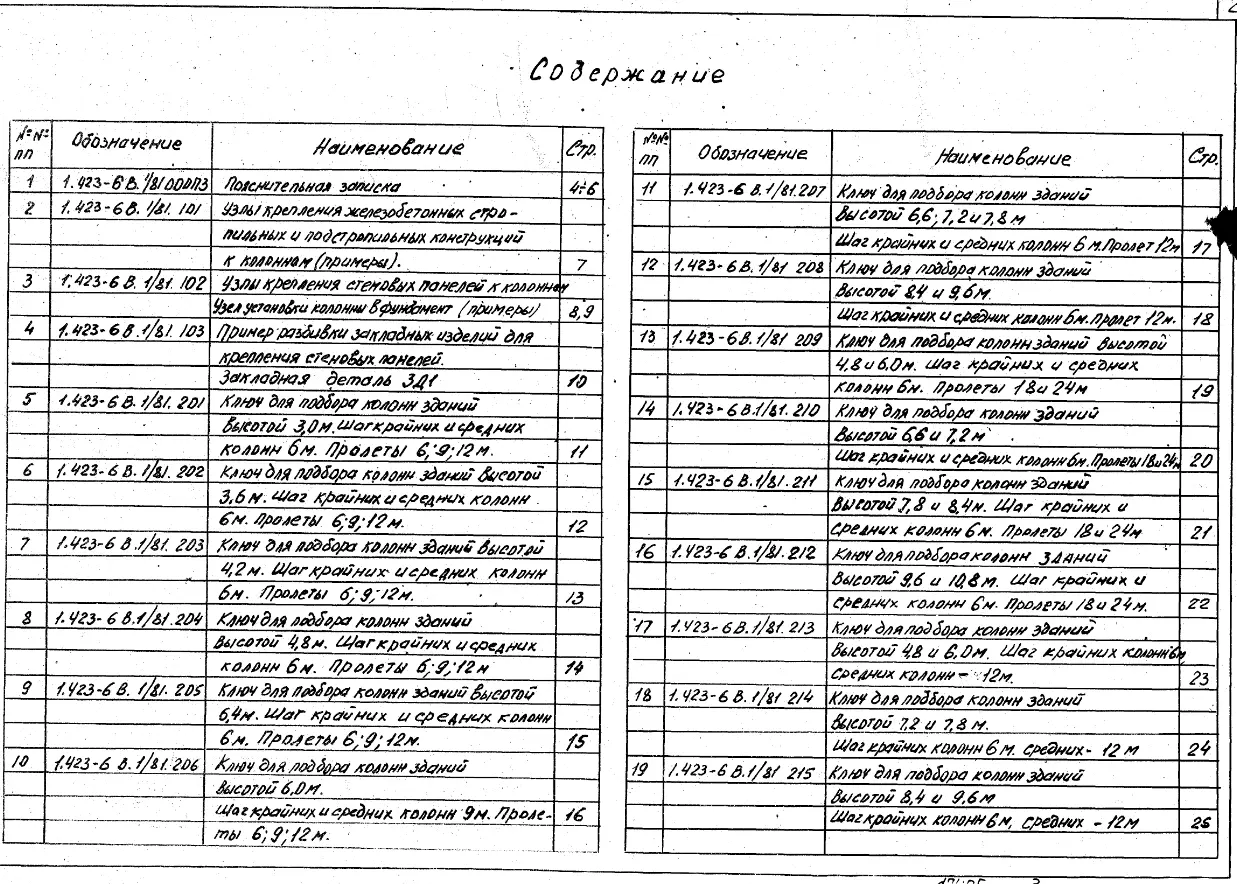 Содержание
№№ пп Обозначение Наименование Стр.
1 1.423-6 В.1/81 000ПЗ Пояснительная записка 4÷6
2 1.423-6 В. 1/81. 101 Узлы крепления железобетонных стро-
пильных и подстропильных конструкций
к колоннам (примеры). 7
3 1.423-6 В. 1/81. 102 Узлы крепления стеновых панелей к колоннам
Узел установки колонны в фундамент (примеры) 8,9
4 1.423-6 В.1/81. 103 Пример разбивки закладных изделий для
крепления стеновых панелей.
Закладная деталь ЗД1 10
5 1.423-6 В. 1/81. 201 Ключ для подбора колонн зданий
Высотой 3,0м. Шаг крайних и средних
колонн 6м. Пролеты 6; 9; 12м. 11
6 1.423-6 В. 1/81. 202 Ключ для подбора колонн зданий высотой
3,6 м. Шаг крайних и средних колонн
6м. Пролеты 6; 9; 12м. 12
7 1.423-6 В.1/81. 203 Ключ для подбора колонн зданий высотой
4,2 м. Шаг крайних и средних колонн
6м. Пролеты 6; 9; 12м. 13
8 1.423-6 В.1/81.204 Ключ для подбора колонн зданий
Высотой 4,8м. Шаг крайних и средних
колонн 6м. Пролеты 6; 9; 12м 14
9 1.423-6 В. 1/81. 205 Ключ для подбора колонн зданий высотой
6,4м. Шаг крайних и средних колонн
6м. Пролеты 6; 9; 12м. 15
10 1.423-6 В.1/81.206 Ключ для подбора колонн зданий
Высотой 6,0м.
Шаг крайних и средних колонн 9м. Проле- 16
ты 6; 9; 12м.
№№ пп Обозначение Наименование Стр.
11 1.423-6 В.1/81.207 Ключ для подбора колонн зданий
Высотой 6,6; 7,2 и 7,8 м
Шаг крайних и средних колонн 6 м. Пролет 12м 17
12 1.423-6 В.1/81 208 Ключ для подбора колонн зданий
Высотой 8,4 и 9,6м.
Шаг крайних и средних колонн 6м. Пролет 12м. 18
13 1.423-6 В.1/81 209 Ключ для подбора колонн зданий высотой
4,8 и 6,0м. Шаг крайних и средних
колонн 6м. Пролеты 18 и 24м 19
14 1.423-6 В.1/81. 210 Ключ для подбора колонн зданий
Высотой 6,6 и 7,2 м
Шаг крайних и средних колонн 6м. Пролеты 18 и 24м 20
15 1.423-6 В.1/81. 211 Ключ для подбора колонн зданий
Высотой 7,8 и 8,4м. Шаг крайних и
средних колонн 6м. Пролеты 18 и 24м 21
16 1.423-6 В.1/81.212 Ключ для подбора колонн зданий
Высотой 9,6 и 10,8 м. Шаг крайних и
средних колонн 6м. Пролеты 18 и 24м. 22
17 1.423-6 В.1/81.213 Ключ для подбора колонн зданий
Высотой 4,8 и 6,0м. Шаг крайних колонн 6м
средних колонн - 12м. 23
18 1.423-6 В.1/81 214 Ключ для подбора колонн зданий
Высотой 7.2 и 7,8 м.
Шаг крайних колонн 6 м. средних - 12 м 24
19 1.423-6 В.1/81 215 Ключ для подбора колонн зданий
Высотой 8,4 и 9.6м
Шаг крайних колонн 6 м, средних - 12м 25